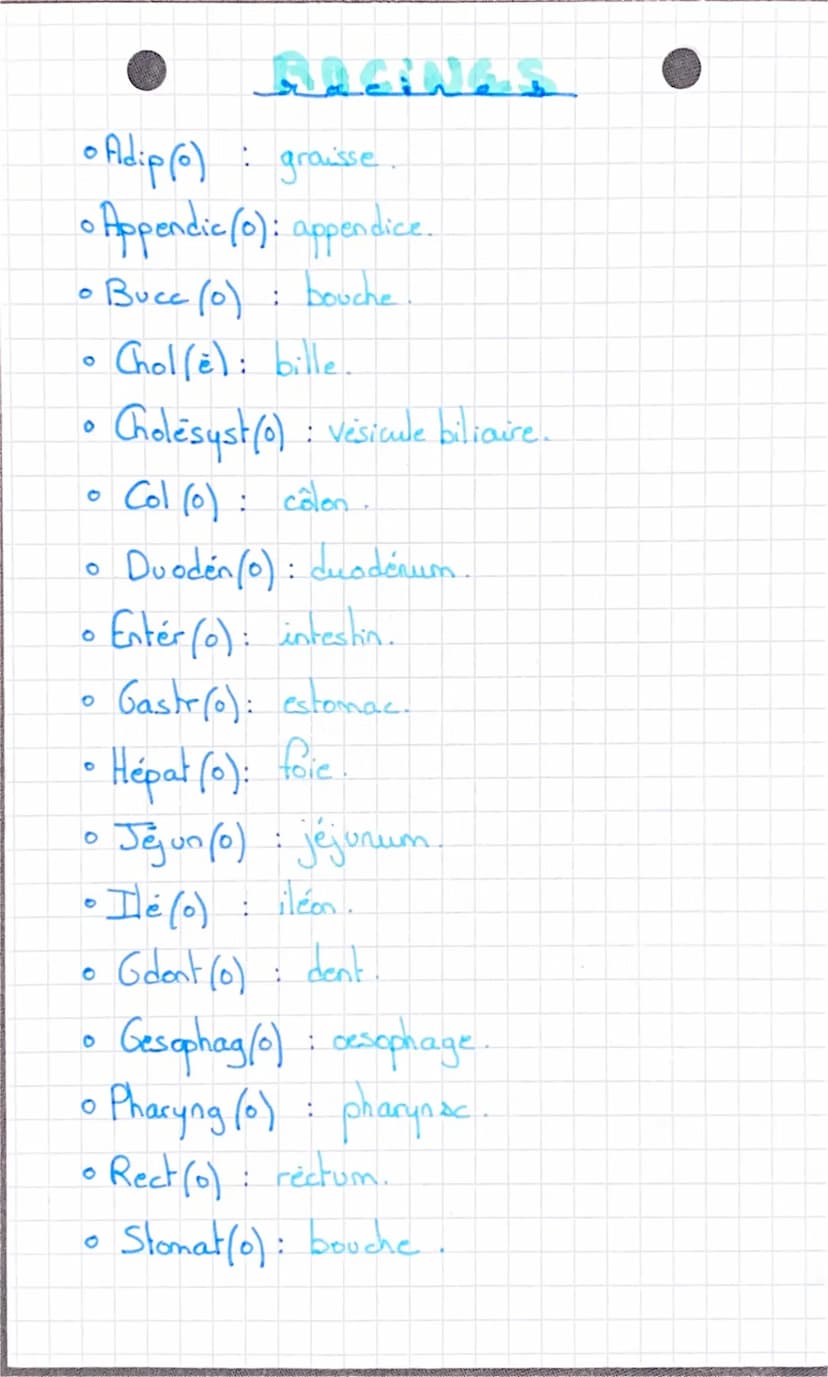 RACINES
racines
° Adip(o) : graisse.
° Appendic(o) : appendice.
° Bucc(o) : bouche.
° Chol(é) : bille.
° Cholésyst(o) : vésicule biliaire.
° Col(o) : côlon.
° Duodén(o) : duodénum.
° Entér(o) : intestin.
° Gastr(o) : estomac.
° Hépat(o) : foie.
° Jéjun(o) : jéjunum.
° Ilé(o) : iléon.
° Odont(o) : dent.
° Oesophag(o) : oesophage.
° Pharyng(o) : pharynx.
° Rect(o) : réctum.
° Stomat(o) : bouche.